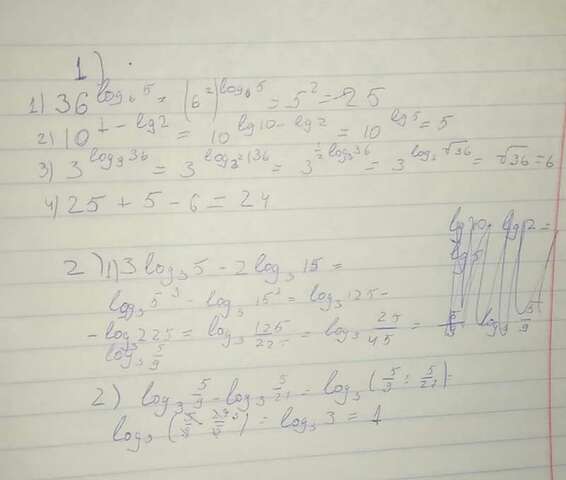 1)
1) 36^log₆5 = (6²)^log₆5 = 5² = 25
2) 10^1-lg2 = 10^lg10-lg2 = 10^lg5 = 5
3) 3^log₉36 = 3^log₃²36 = 3^½log₃36 = 3^log₃√36 = √36 = 6
4) 25 + 5 - 6 = 24
2) 1) 3log₃5 - 2log₃15 =
log₃5³ - log₃15² = log₃125 -
- log₃225 = log₃ 125/225 = log₃ 25/45 =
log₃ 5/9
2) log₃ 5/9 - log₃ 5/21 = log₃ (5/9 : 5/21) =
= log₃3 = 1